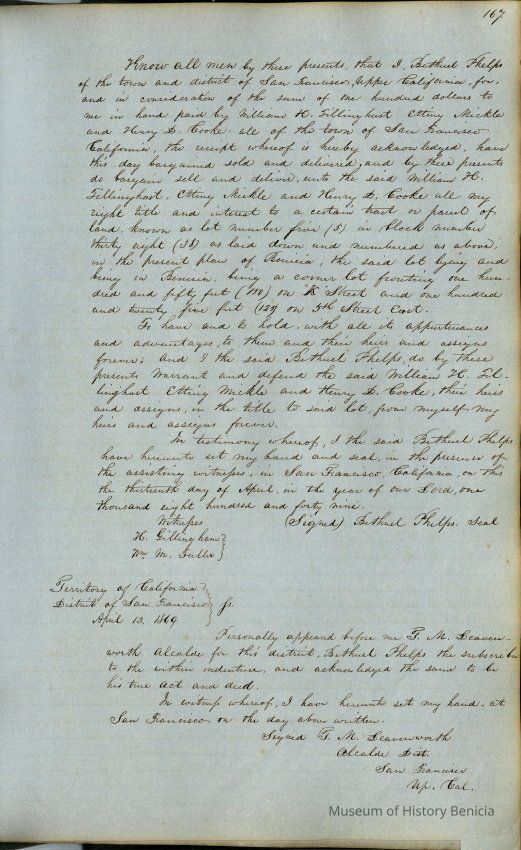 167
Know all men by these presents, that I, Bethuel Phelps
of the town and district of San Francisco, Upper California, for,
and in consideration of the sum of one hundred dollars to
me in hand paid by William H. Tillinghast Etting Mickle
and Henry D. Cooke all of the town of San Francisco
California, the receipt whereof is hereby acknowledged, have
this day bargained sold and delivered, and by these presents
do bargain sell and deliver, unto the said William H.
Tillinghast, Etting Mickle and Henry D. Cooke all my
right title and interest to a certain tract or parcel of
land, known as lot number five (5) in block number
thirty eight (38) as laid down and numbered as above,
in the present plan of Benicia, the said lot lying and
being in Benicia, being a corner lot fronting one hun-
dred and fifty feet (150) on "K" Street and one hundred
and twenty five feet (125) on 5th Street East.
To have and to hold, with all its appurtenances
and advantages, to them and their heirs and assigns
forever; and I the said Bethuel Phelps, do by these
presents warrant and defend the said William H. Til-
linghast Etting Mickle and Henry D. Cooke, their heirs
and assigns, in the title to said lot, from myself my
heirs and assigns forever.
In testimony whereof, I the said Bethuel Phelps
have hereunto set my hand and seal, in the presence of
the assisting witnesses, in San Francisco, California, on this
the thirteenth day of April, in the year of our Lord, one
thousand eight hundred and forty nine.
Witnesses (Signed) Bethuel Phelps. Seal
H. Gillingham
Wm M.
Territory of California
District of San Francisco } Ss.
April 13, 1849
Personally appeared before me T. M. Leaven-
worth Alcalde for this district, Bethuel Phelps the subscriber
to the within indenture, and acknowledged the same to be
his true act and deed.
In witness whereof, I have hereunto set my hand, at
San Francisco, on the day above written.
Signed T. M. Leavenworth
Alcalde Dist.
San Francisco
Up. Cal.
Museum of History Benicia